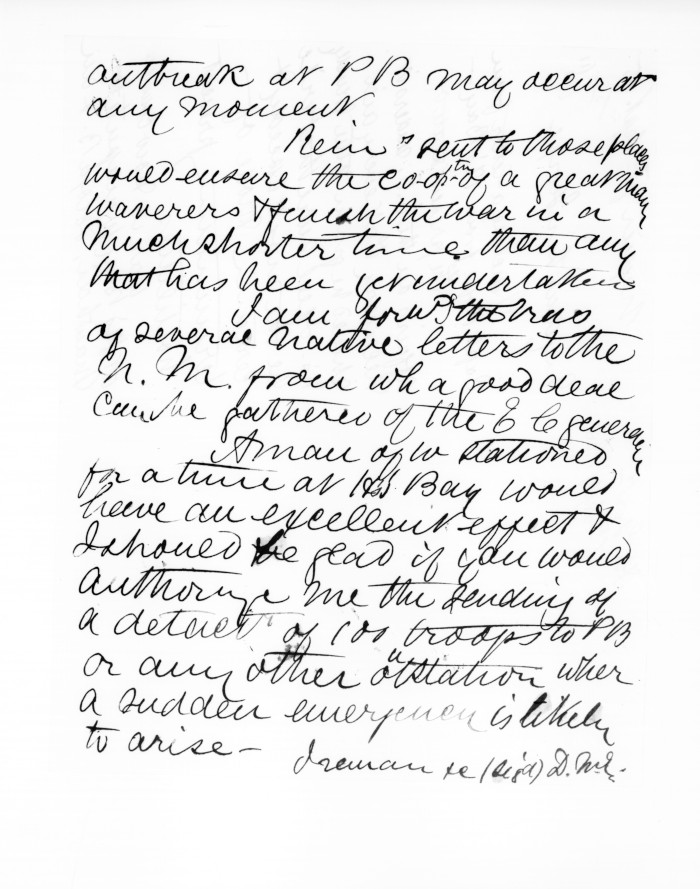 outbreak at P B may occur at
any moment
Rein^ts sent to those places
would ensure the co-op^tn of a great many
waverers & finish the war in a
much shorter time than any
that has been yet undertaken
I am forw^g the trans
of several native letters to the
N. M. from wh a good deal
can be gathered of the E C generally
A man of w stationed
for a time at Hs Bay would
have an excellent effect &
I should be glad if you would
authorize me the sending of
a detach^t of 100 troops to P B
or any other station wher
a sudden emergency is likely
to arise —
I remain &c (sigd) D. McL.